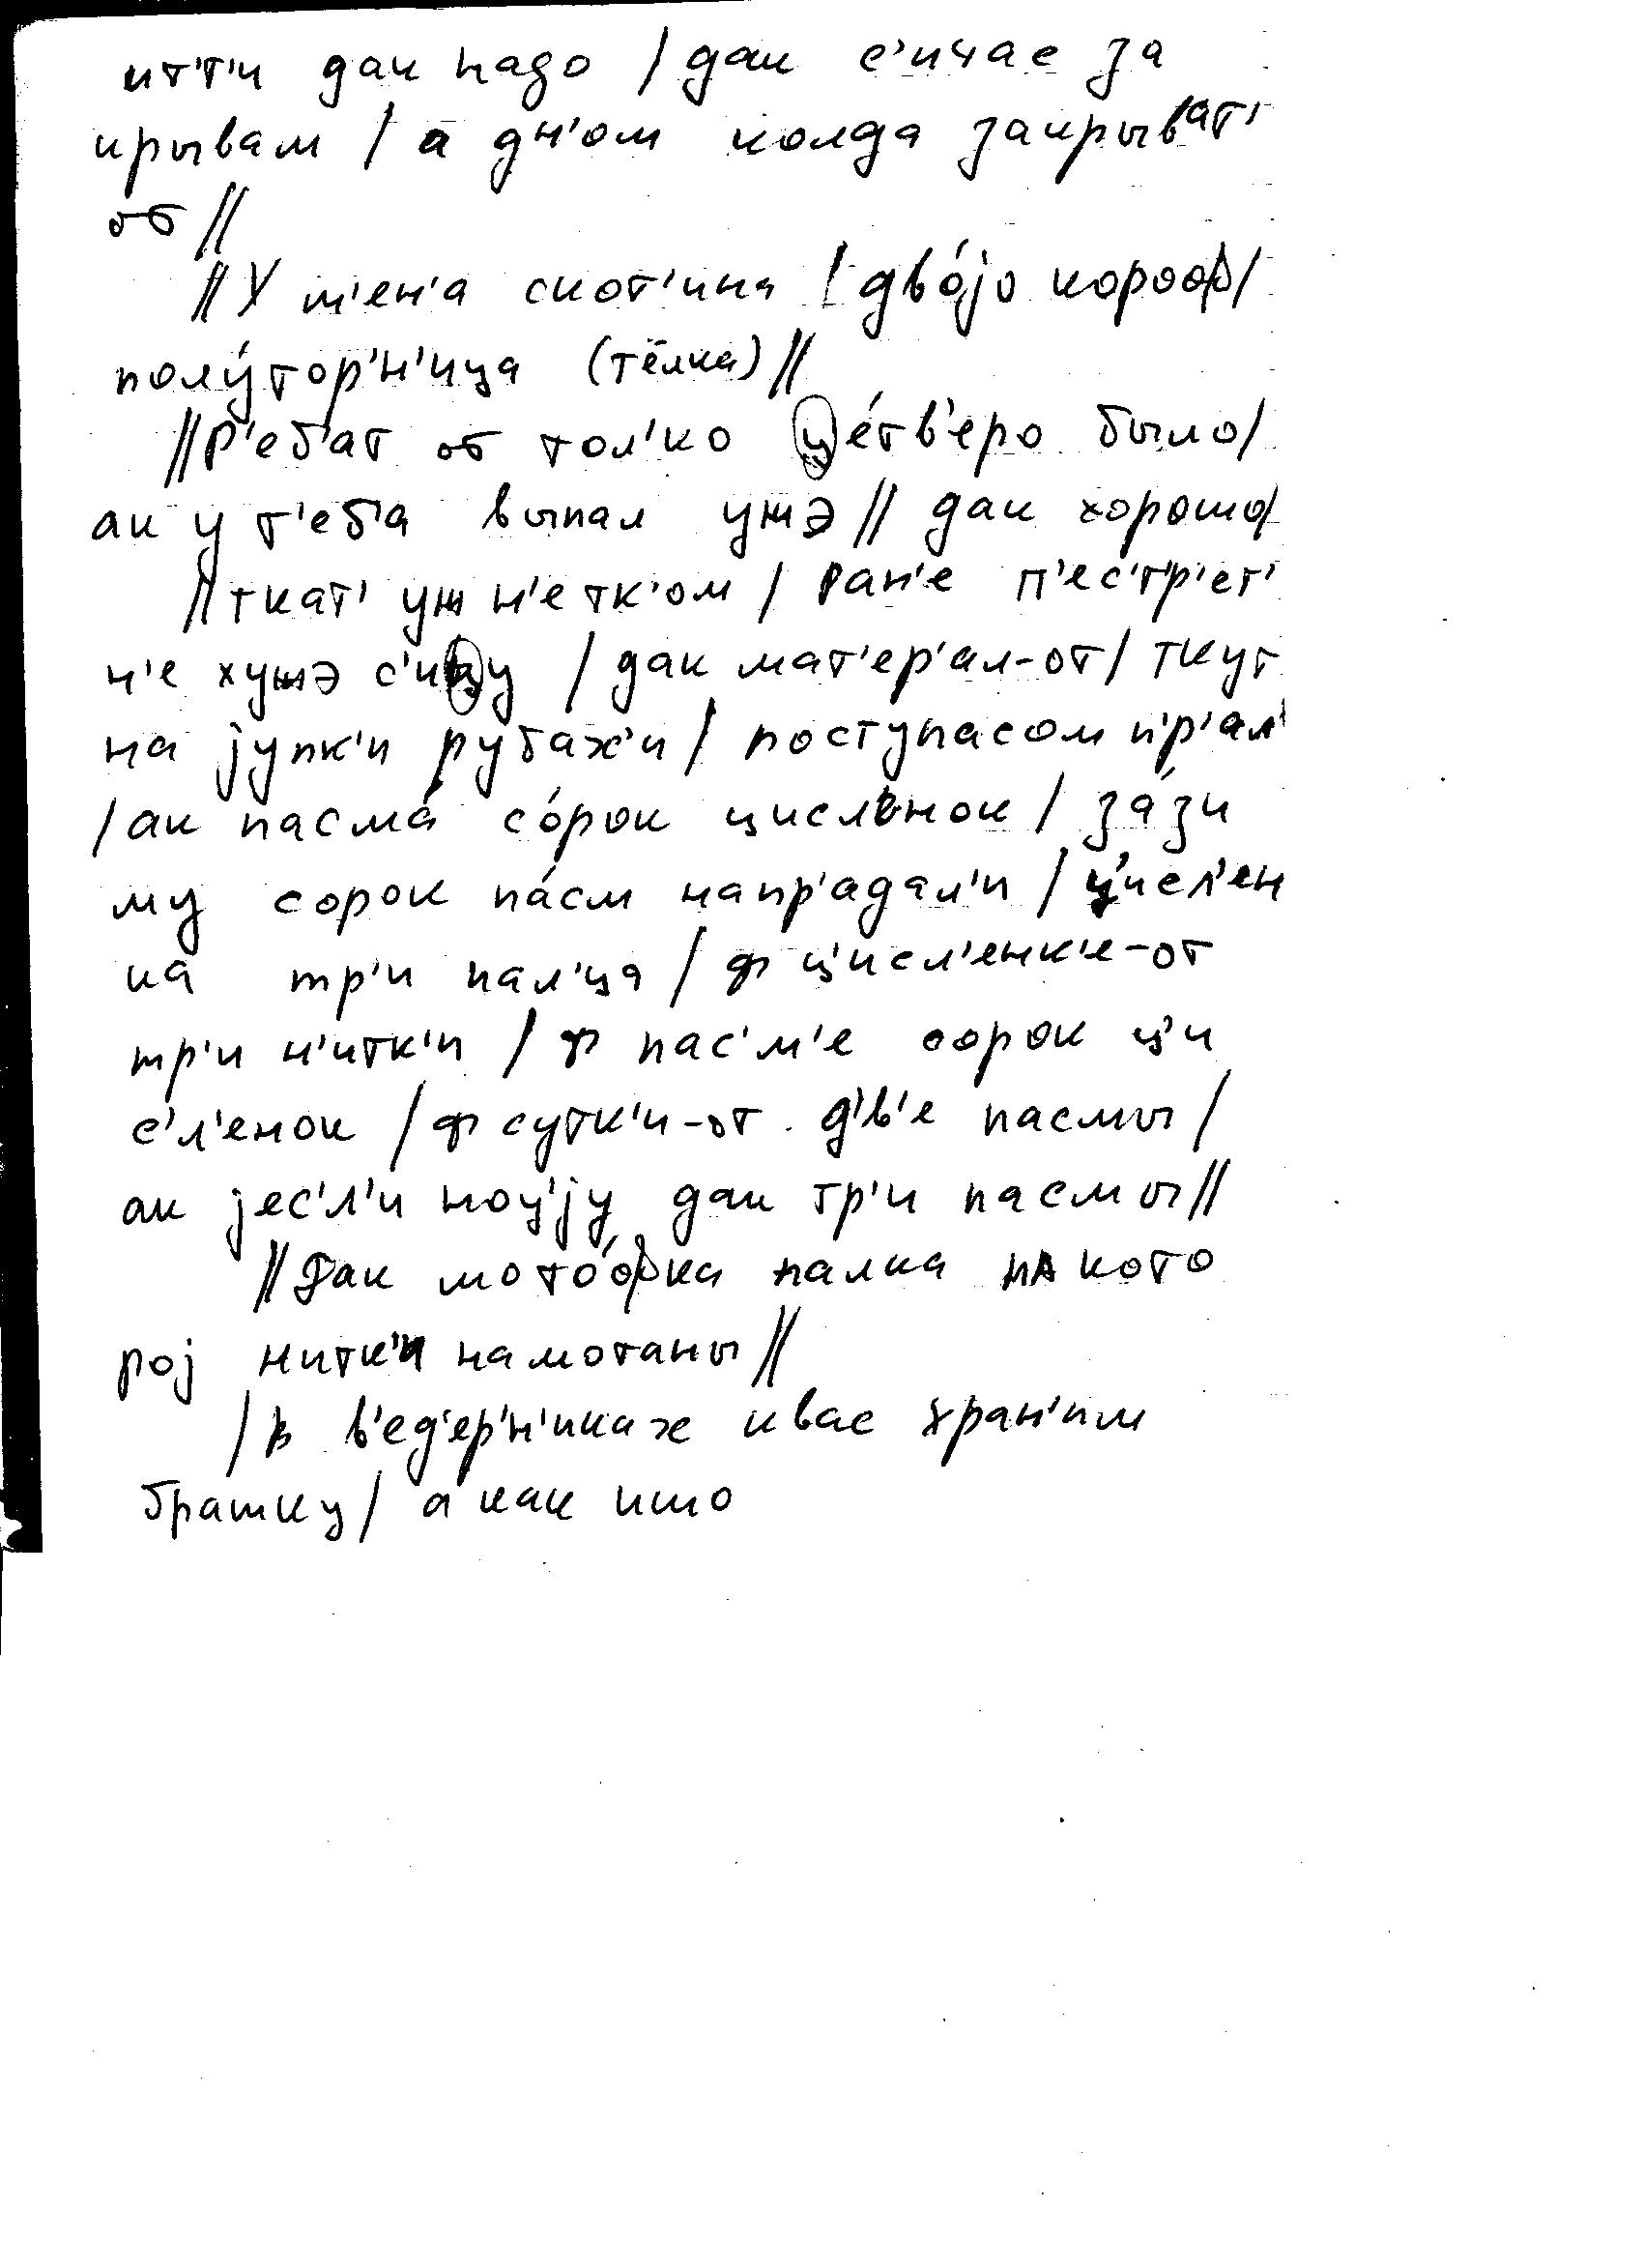 ит'т'и дак надо / дак с'ичас за
крывам / а дн'ом колда закрыват'
от //
// У м'ен'а скот'ина / дво́јо короф /
полу́тор'н'ица (тёлка) //
// Р'еб'ат от тол'ко це́тв'еро было /
ак у т'еб'а выпал ужэ // дак хорошо /
// ткат' уж н'е тк'ом / ран'е п'ес'т'р'ет'
н'е хужэ с'ицу / дак мат'ер'ал-от / ткут
на јупк'и рубах'и / поступасом пр'ал'
/ ак пасма́ со́рок цисльнок / за́зи
му сорок па́см напр'адал'и / ц'исл'ен
ка тр'и пал'ца / ф ц'исл'енк'е-от
тр'и н'итк'и / ф пас'м'е сорок ц'и
с'л'енок / ф сутк'и-от д'в'е пасмы /
ак јес'л'и ноц'ју дак тр'и пасмы //
// Дак мото́фка палка на кото
рој нитк'и намотаны //
/ в в'ед'ер'н'иках квас хран'им
брашку / а как ишо